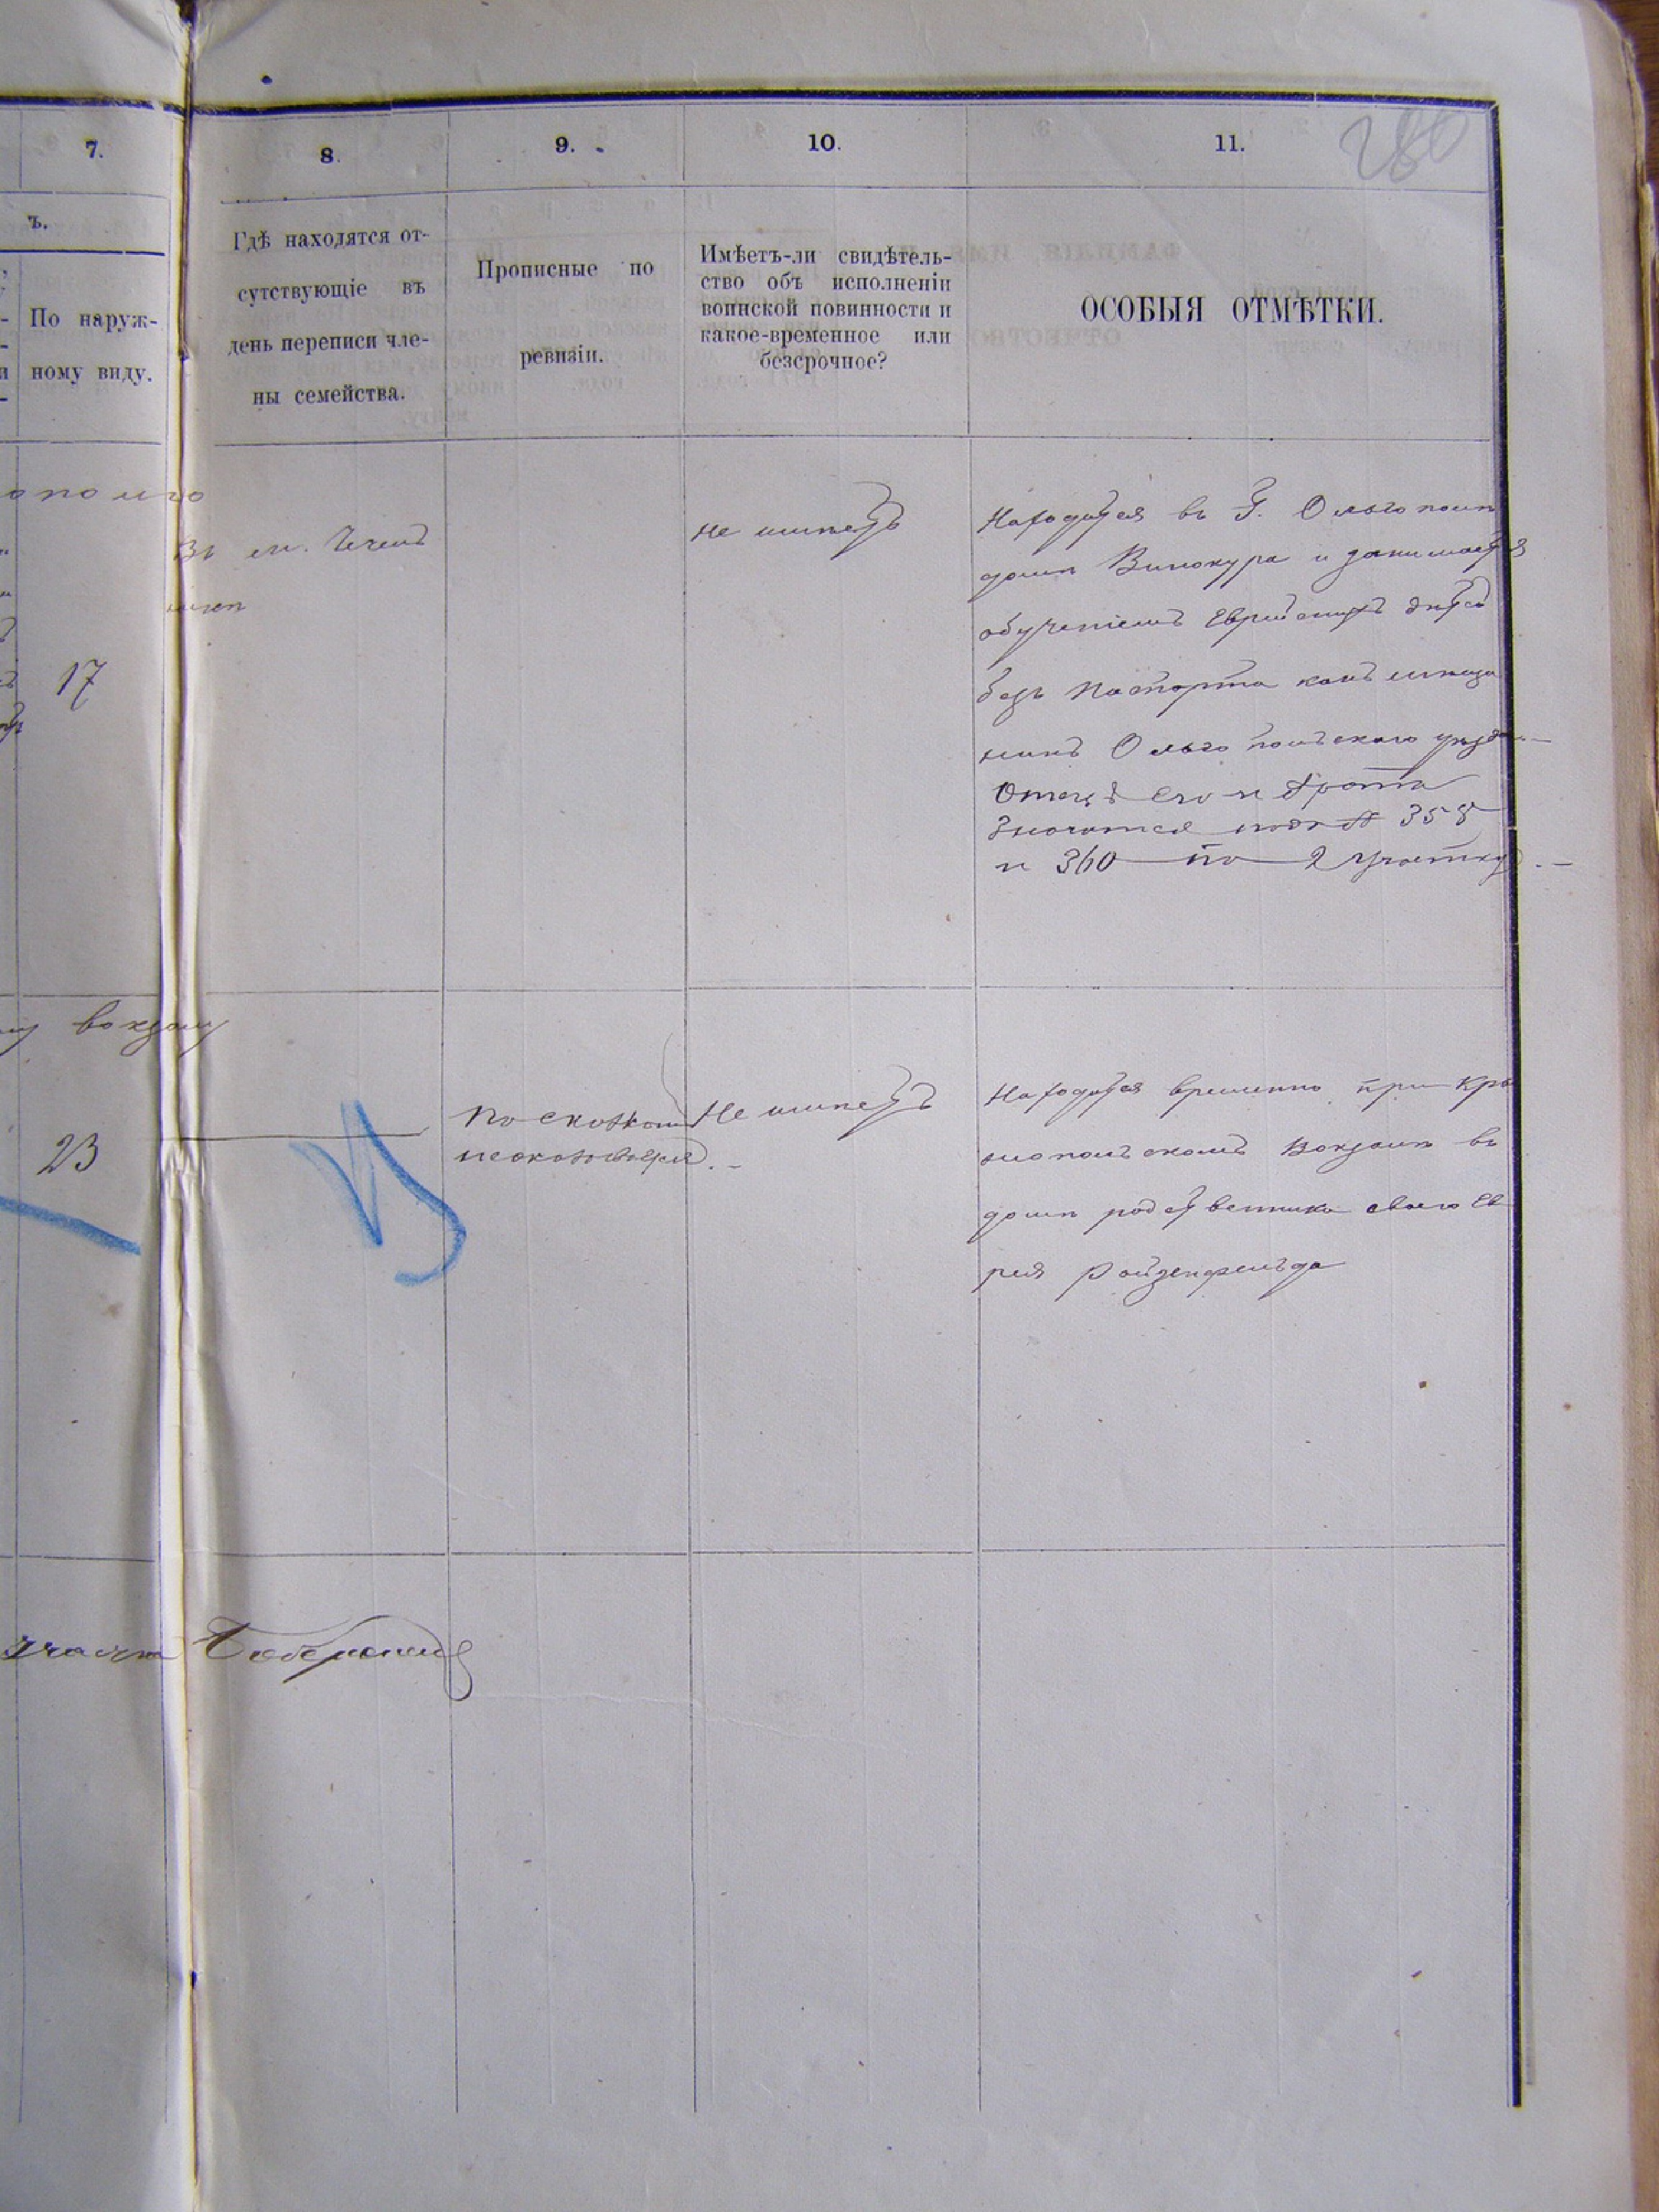 7.
8.
9.
10.
11.
280
ъ.
По наруж-
ному виду.
Гдѣ находятся от-
сутствующіе въ
день переписи чле-
ны семейства.
Прописные по
ревизіи.
Имѣетъ-ли свидѣтель-
ство объ исполненіи
воинской повинности и
какое-временное или
безсрочное?
ОСОБЫЯ ОТМѢТКИ.
17
Въ м. Чечель
никѣ
Не имѣетъ
Находится въ Г. Ольгополѣ
домѣ Винокура и занимается
обученіемъ Еврейскихъ дѣтей
безъ паспорта какъ мѣща
нинъ Ольгопольскаго уѣзда. —
Отецъ его и брата
значатся подъ № 358
и 360 по 2 участку. —
вокзалу
23
По сказкамъ
неоказывается. —
Не имѣетъ
Находится временно при Кры
жопольскомъ Вокзалѣ въ
домѣ родственника своего Ев
рея Ройзенфельда